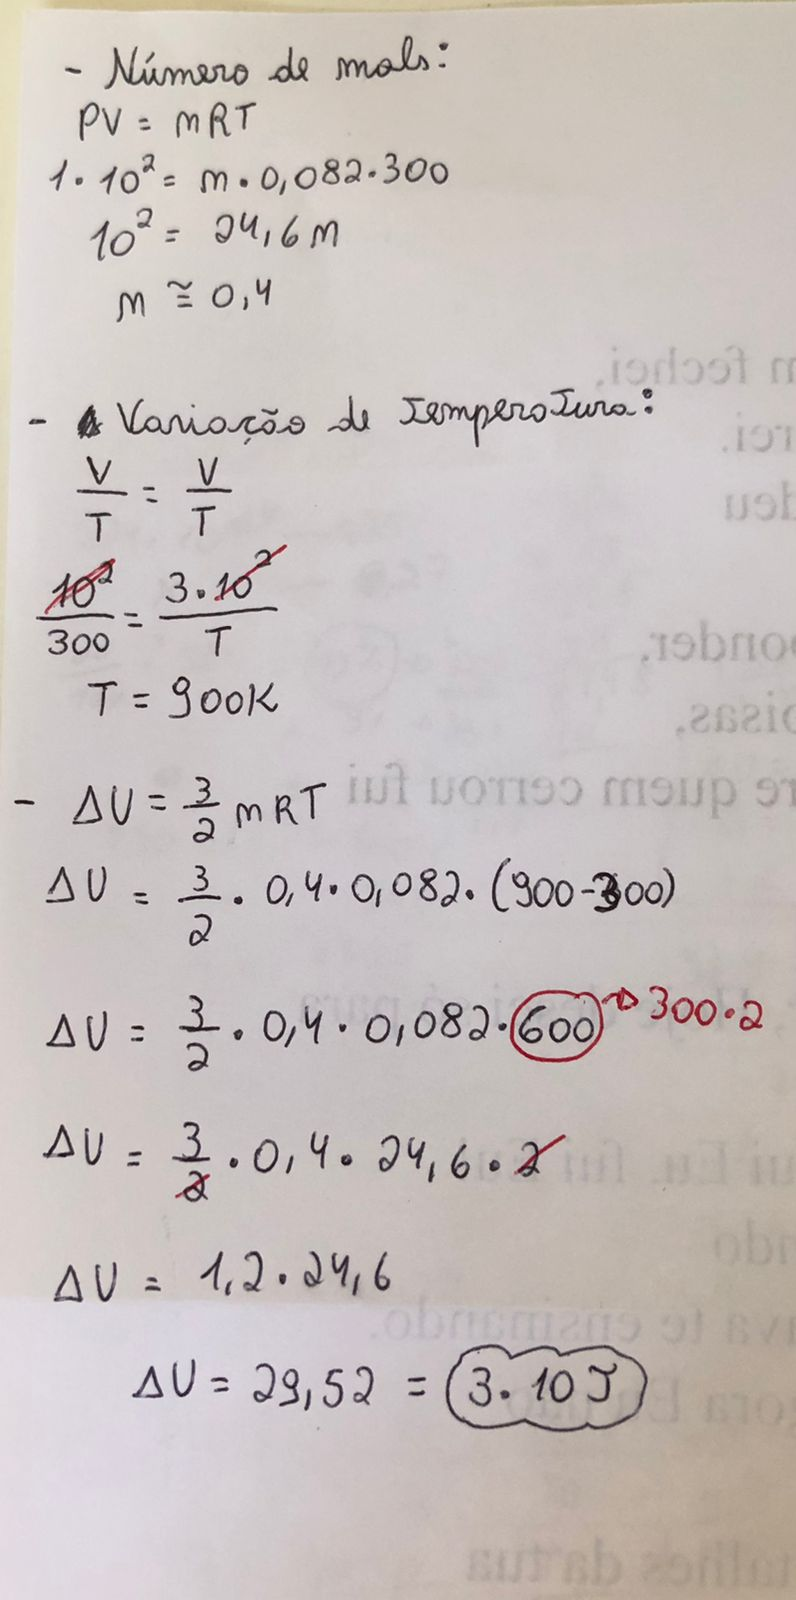 - Número de mols:
PV = nRT
1 · 10² = n · 0,082 · 300
10² = 24,6n
n ≅ 0,4
- Variação de temperatura:
V/T = V/T
10²/300 = 3 · 10²/T
T = 900K
- ΔU = 3/2 nRT
ΔU = 3/2 · 0,4 · 0,082 · (900-300)
ΔU = 3/2 · 0,4 · 0,082 · 600 → 300 · 2
ΔU = 3/2 · 0,4 · 24,6 · 2
ΔU = 1,2 · 24,6
ΔU = 29,52 = 3 · 10J